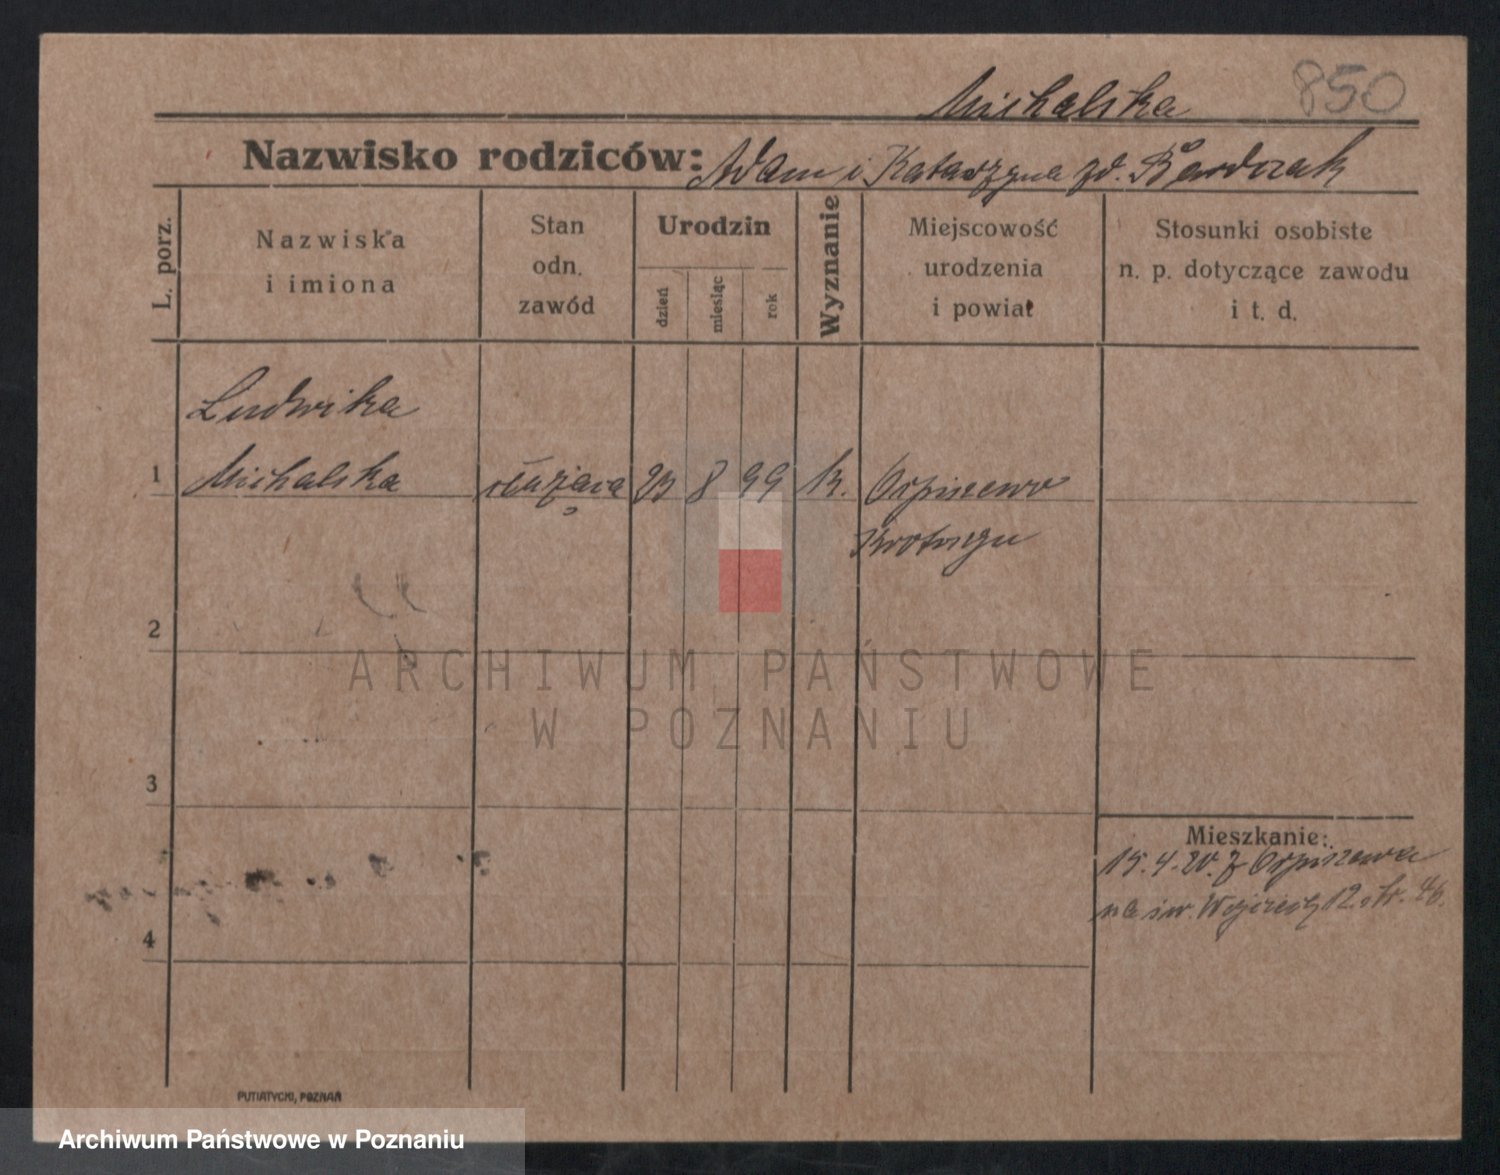 Michalska 850
Nazwisko rodziców: Adam i Katarzyna zd. Bardczak
L. porz.
Nazwiska
i imiona
Stan
odn.
zawód
Urodzin
dzień
miesiąc
rok
Wyznanie
Miejscowość
urodzenia
i powiat
Stosunki osobiste
n. p. dotyczące zawodu
i t. d.
Ludwika
1 Michalska służąca 23 8 99 k. Orpiszewo
Krotoszyn
2
ARCHIWUM PAŃSTWOWE
W POZNANIU
3
Mieszkanie:
15.4.20. z Orpiszewa
na św. Wojciech 12. str. 46.
4
PUTIATYCKI, POZNAŃ
Archiwum Państwowe w Poznaniu